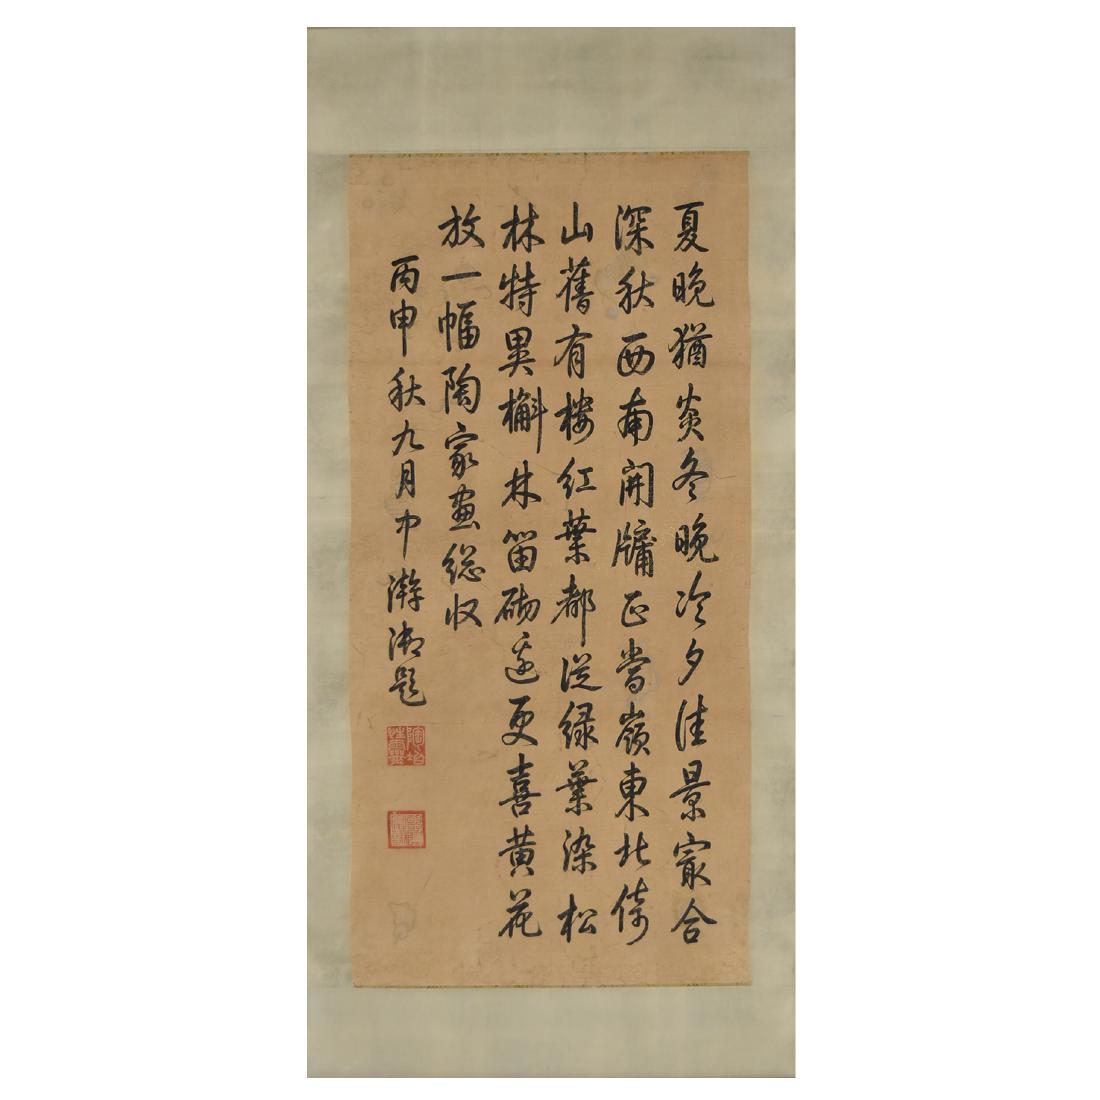 夏晚猶炎冬晚冷夕佳景㝡合
深秋西南開牖正當嶺東北倚
山舊有樓紅葉都從綠葉染松
林特異槲林笛砌邊更喜黃花
放一幅陶家畫總收
丙申秋九月中澣御題
陶冶性靈